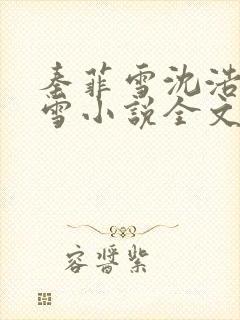 秦菲雪沈浩
雪小说全文
容酱紫